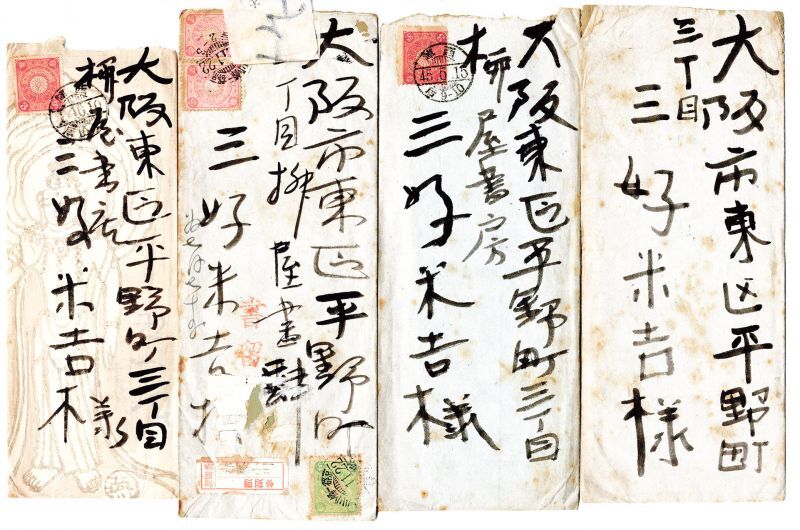 大阪市東区平野町
三丁目
三好米吉様
大阪東区平野町三丁目
柳屋書房
三好米吉様
45.6.15
大阪市東区平野町
丁目柳屋書肆
三好米吉様
書留
大阪東区平野町三丁目
柳屋書店
三好米吉様